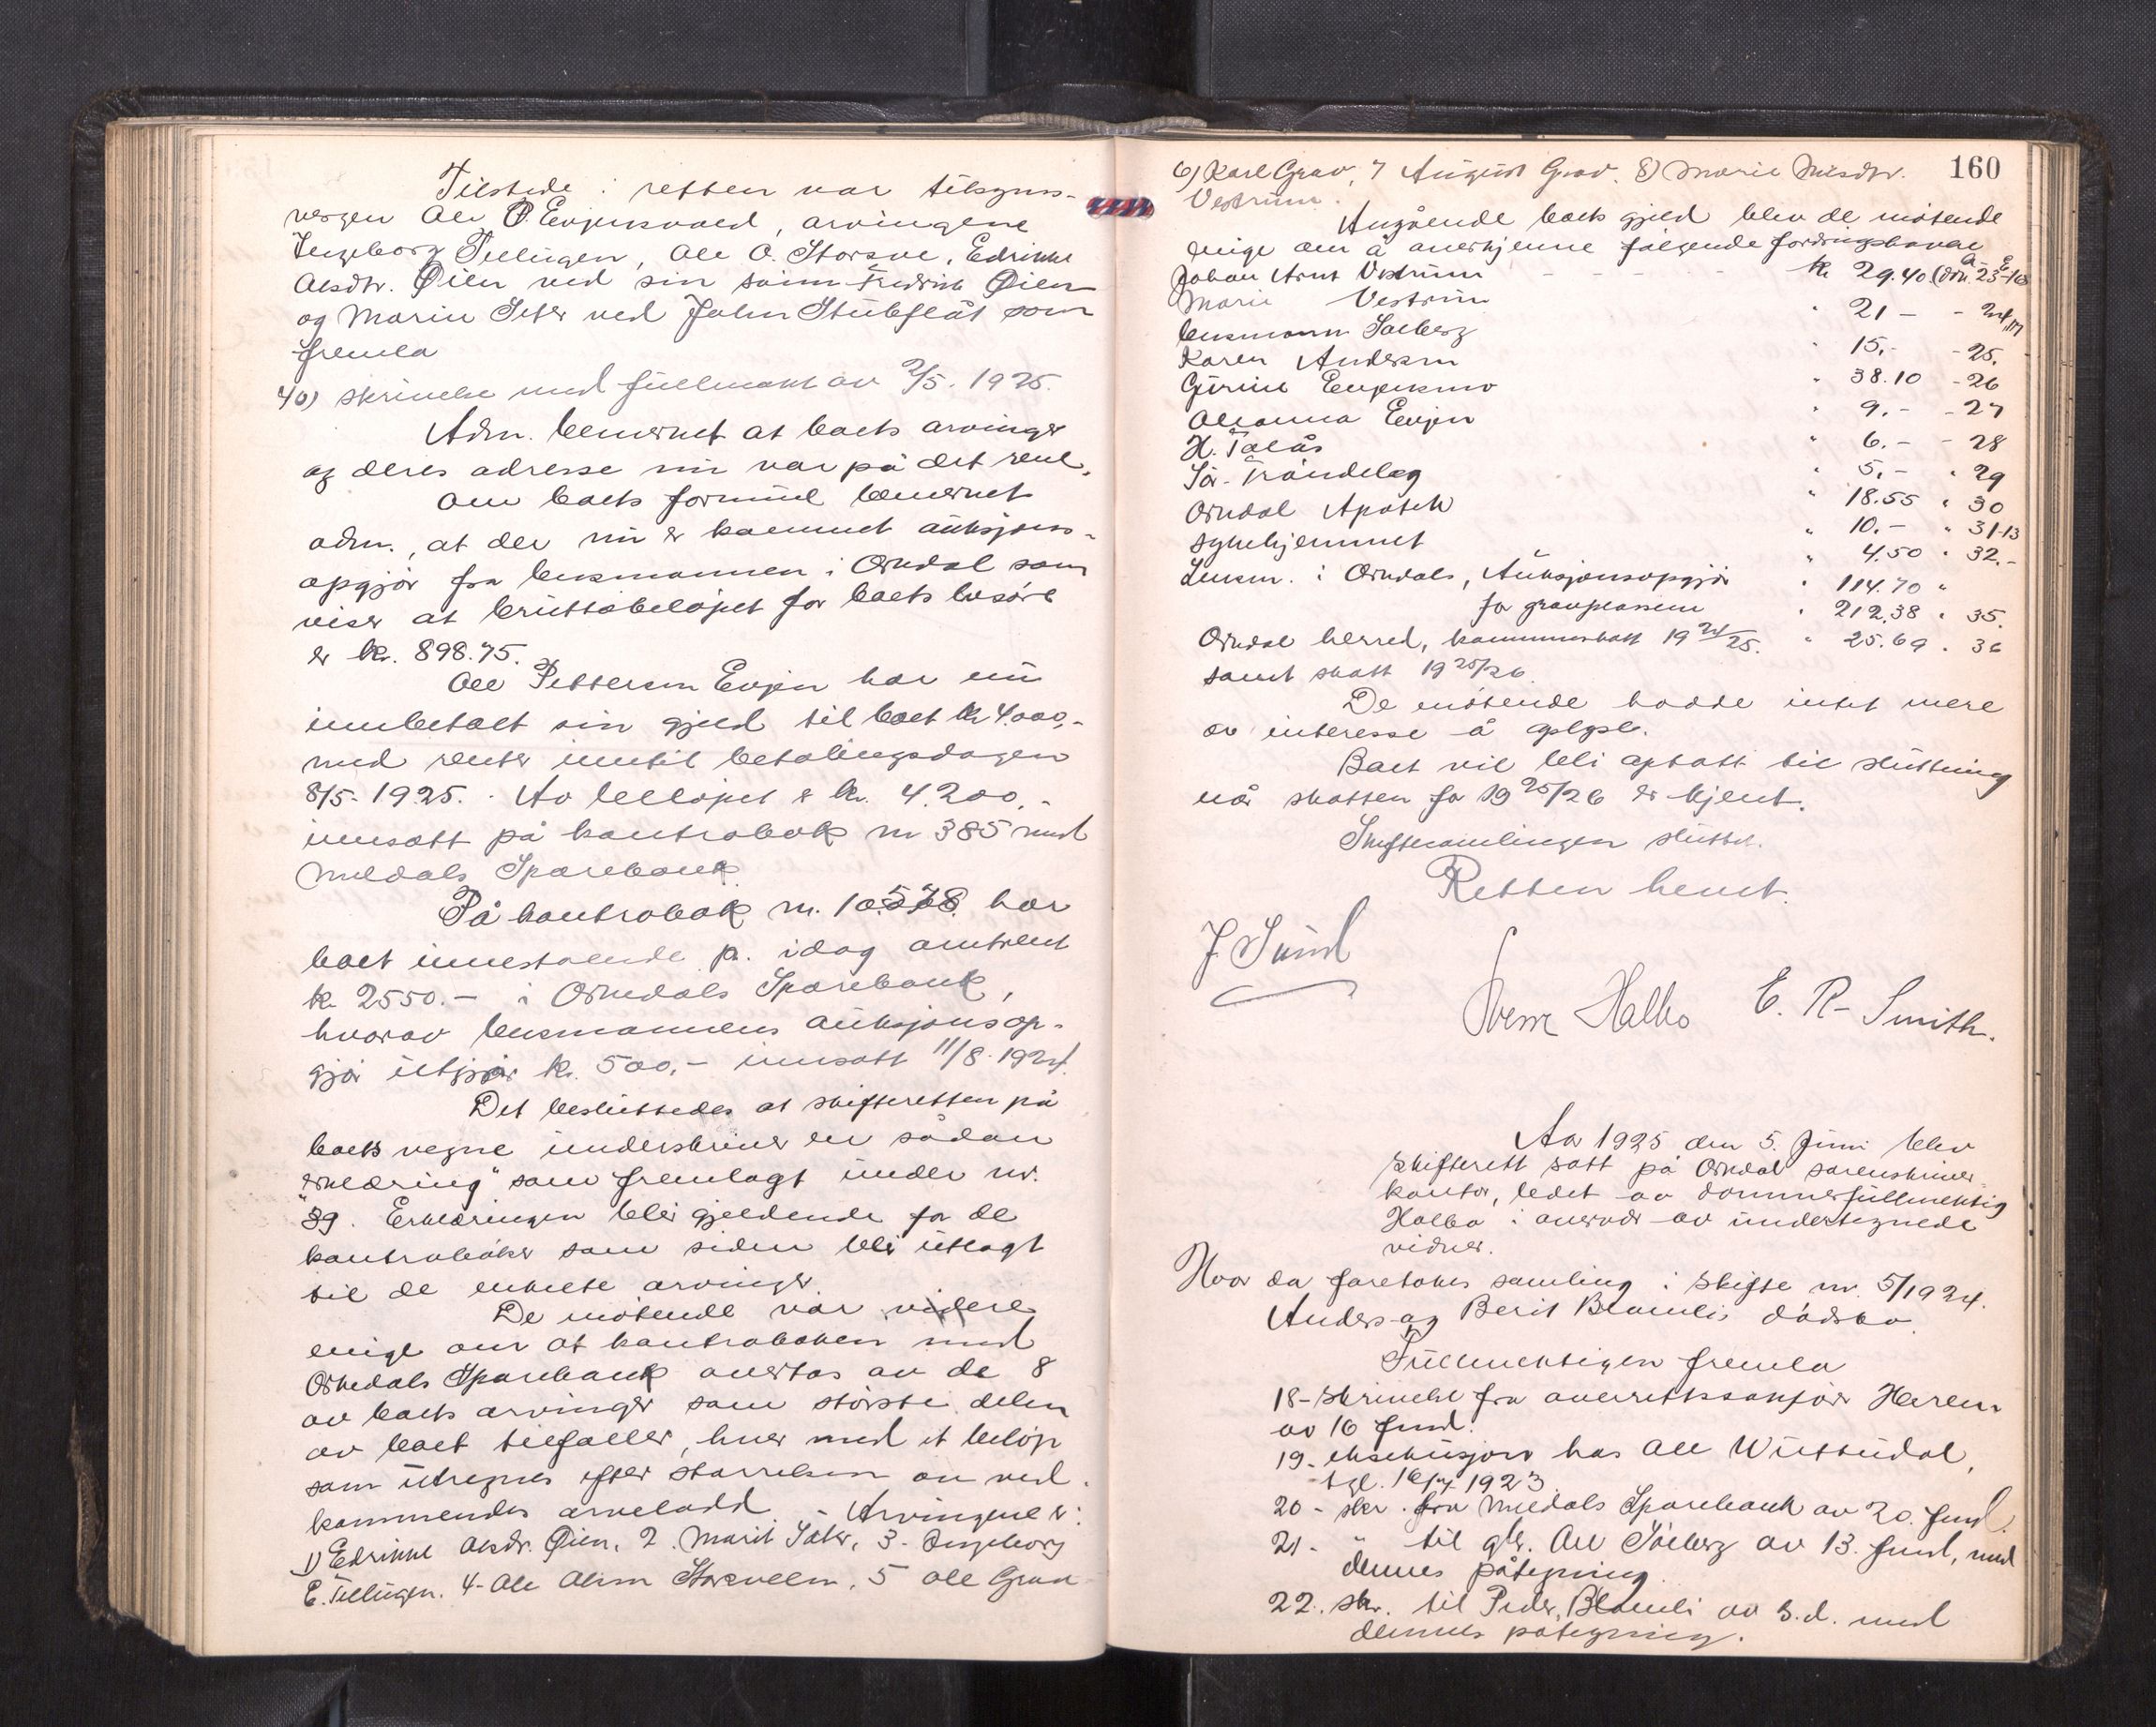 Tilstede i retten var tilsyns-
vergen Ole P. Evjensvold, arvingene
Ingeborg Tellugen, Ole O. Storsve, Edrikke
Olsdtr. Øien ved sin sönn Fredrik Øien
og Marin Seter ved John Stubflåt som
fremla
40) skrivelse med fullmakt av 2/5. 1925.
Adm. bemerket at boets arvinger
og deres adresse nu var på det rene.
Om boets formue bemerket
adm., at der nu er kommet auksjons-
opgjör fra lensmannen i Orkdal som
viser at bruttobelöpet for boets lösöre
er kr. 898.75.
Ole Pettersen Evjen har nu
innbetalt sin gjeld til boet kr 4.000,-
med renter inntil betalingsdagen
8/5-1925. Av belöpet er kr. 4.200,-
innsatt på kontrabok nr 385 med
Meldals Sparebank.
På kontrabok nr. 10.578. har
boet innestående pr. idag omtrent
kr. 2550.- i Orkedals Sparebank,
hvorav lensmannens auksjonsop-
gjör utgjör kr. 500,- innsatt 11/8-1924.
Det besluttedes at skifteretten på
boets vegne underskriver en sådan
"erklæring" som fremlagt under nr.
39. Erklæringen blir gjeldende for de
kontraböker som siden blir utlagt
til de enkelte arvinger.
De mötende var videre
enige om at kontraboken med
Orkedals Sparebank overtas av de 8
av boets arvinger som störste delen
av boet tilfaller, hver med et belöp
som utregnes efter störrelsen av ved-
kommendes arvelodd. - Arvingene er:
1) Edrikke Olsdr. Öien, 2. Marit Sæter, 3. Ingeborg
E. Tellugen. 4. Ole Olsen Storsveen, 5 Ole Grav
160
6) Karl Grav, 7 August Grav. 8) Marie Nilsdtr.
Vestrum.
Angående boets gjeld blev de mötende
enige om å anerkjenne fölgende fordringshavere
Johan Arnt Vestrum - - - - kr. 29.40 (dok. 23-16)
Marie Vestrum " 21 - - 24,17
lensmann Solberg " 15,- - 25.
Karen Andersen " 38.10 - 26
Gurine Evjensmo " 9.- - 27
Oleanna Evjen " 6.- - 28
H. Talås " 5,- " 29
Sör-Tröndelag " 18.55 " 30
Orkdal Apotek " 10.- " 31-13
sykehjemmet " 4,50 " 32.-
Lensm. i Orkdals, Auksjonsopgjör " 114.70 "
for gravplassen " 212,38 " 35.
Orkdal herred, kommuneskatt 1924/25. " 25.69 " 36
samt skatt 1925/26.
De mötende hadde intet mere
av interesse å
Boet vil bli optatt til slutning
når skatten for 1925/26 er kjent.
Skiftesamlingen sluttet.
Retten hevet.
J Sund
Sverre Halbo E. R. Smith.
Aar 1925 den 5. juni blev
skifterett satt på Orkdal sorenskriver-
kontor, ledet av dommerfullmektig
Halbo i overvær av undertegnede
vidner.
Hvor da foretokes samling i skifte nr. 5/1924.
Anders og Berit Blomli, dödsbo.
Fullmektigen fremla
18- skrivelse fra overrettssakförer Herrem
av 16 f.md.
19. eksekusjon hos Ole
tgl. 1923
20 - skr. fra Meldals Sparebank av 20. f.md.
21. - " til gbr. Ole Solberg av 13. f.md, med
dennes påtegning.
22. skr. til Peder Blomli av s.d. med
dennes påtegning.